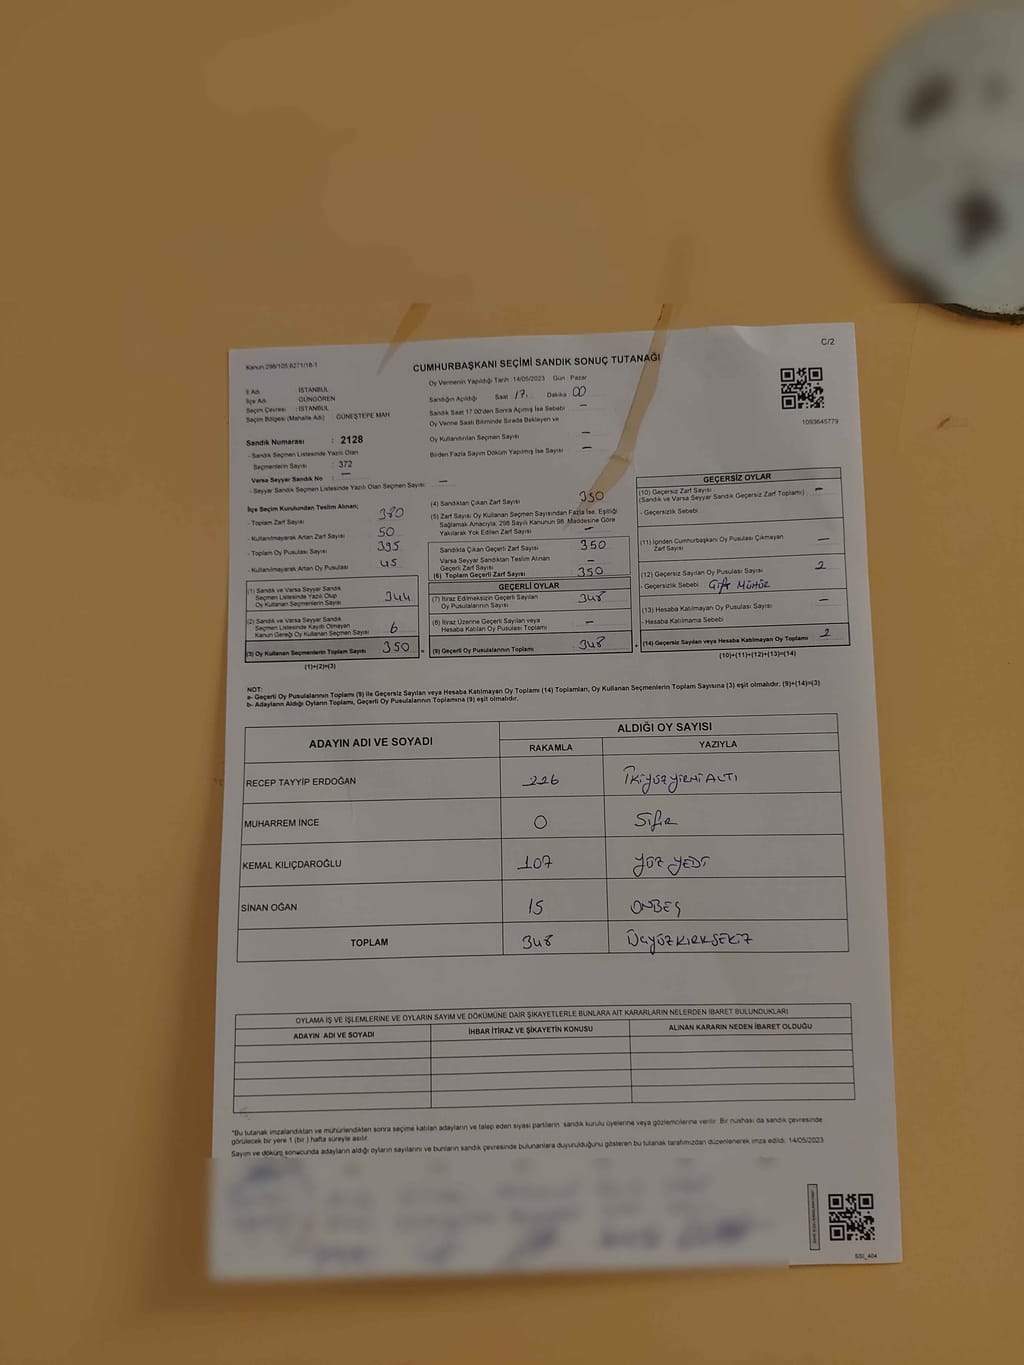 Kanun:298/105.6271/18-1
C/2
CUMHURBAŞKANI SEÇİMİ SANDIK SONUÇ TUTANAĞI
İl Adı : İSTANBUL
İlçe Adı : GÜNGÖREN
Seçim Çevresi : İSTANBUL
Seçim Bölgesi (Mahalle Adı) : GÜNEŞTEPE MAH
Sandık Numarası : 2128
- Sandık Seçmen Listesinde Yazılı Olan
Seçmenlerin Sayısı : 372
Varsa Seyyar Sandık No : —
- Seyyar Sandık Seçmen Listesinde Yazılı Olan Seçmen Sayısı: —
Oy Vermenin Yapıldığı Tarih :14/05/2023 Gün : Pazar
Sandığın Açıldığı Saat 17. Dakika 00
Sandık Saat 17:00'den Sonra Açılmış İse Sebebi —
Oy Verme Saati Bitiminde Sırada Bekleyen ve
Oy Kullandırılan Seçmen Sayısı —
Birden Fazla Sayım Döküm Yapılmış İse Sayısı —
1093645779
İlçe Seçim Kurulundan Teslim Alınan;
- Toplam Zarf Sayısı 380
- Kullanılmayarak Artan Zarf Sayısı 50
- Toplam Oy Pusulası Sayısı 395
- Kullanılmayarak Artan Oy Pusulası 45
(1) Sandık ve Varsa Seyyar Sandık
Seçmen Listesinde Yazılı Olup
Oy Kullanan Seçmenlerin Sayısı 344
(2) Sandık ve Varsa Seyyar Sandık
Seçmen Listesinde Kayıtlı Olmayan
Kanun Gereği Oy Kullanan Seçmen Sayısı 6
(3) Oy Kullanan Seçmenlerin Toplam Sayısı 350 =
(1)+(2)=(3)
(4) Sandıktan Çıkan Zarf Sayısı 350
(5) Zarf Sayısı Oy Kullanan Seçmen Sayısından Fazla İse, Eşitliği
Sağlamak Amacıyla, 298 Sayılı Kanunun 98. Maddesine Göre
Yakılarak Yok Edilen Zarf Sayısı —
Sandıkta Çıkan Geçerli Zarf Sayısı 350
Varsa Seyyar Sandıktan Teslim Alınan
Geçerli Zarf Sayısı —
(6) Toplam Geçerli Zarf Sayısı 350
GEÇERLİ OYLAR
(7) İtiraz Edilmeksizin Geçerli Sayılan
Oy Pusulalarının Sayısı 348
(8) İtiraz Üzerine Geçerli Sayılan veya
Hesaba Katılan Oy Pusulası Toplamı —
(9) Geçerli Oy Pusulalarının Toplamı 348 +
GEÇERSİZ OYLAR
(10) Geçersiz Zarf Sayısı
(Sandık ve Varsa Seyyar Sandık Geçersiz Zarf Toplamı) —
- Geçersizlik Sebebi
(11) İçinden Cumhurbaşkanı Oy Pusulası Çıkmayan
Zarf Sayısı —
(12) Geçersiz Sayılan Oy Pusulası Sayısı 2
- Geçersizlik Sebebi Çift MÜHÜR
(13) Hesaba Katılmayan Oy Pusulası Sayısı —
- Hesaba Katılmama Sebebi
(14) Geçersiz Sayılan veya Hesaba Katılmayan Oy Toplamı 2
(10)+(11)+(12)+(13)=(14)
NOT:
a- Geçerli Oy Pusulalarının Toplamı (9) ile Geçersiz Sayılan veya Hesaba Katılmayan Oy Toplamı (14) Toplamları, Oy Kullanan Seçmenlerin Toplam Sayısına (3) eşit olmalıdır. (9)+(14)=(3)
b- Adayların Aldığı Oyların Toplamı, Geçerli Oy Pusulalarının Toplamına (9) eşit olmalıdır.
ADAYIN ADI VE SOYADI
ALDIĞI OY SAYISI
RAKAMLA YAZIYLA
RECEP TAYYİP ERDOĞAN 226 İKİYÜZYİRMİALTI
MUHARREM İNCE 0 Sıfır
KEMAL KILIÇDAROĞLU 107 YÜZ YEDİ
SİNAN OĞAN 15 ONBEŞ
TOPLAM 348 ÜÇYÜZKIRKSEKİZ
OYLAMA İŞ VE İŞLEMLERİNE VE OYLARIN SAYIM VE DÖKÜMÜNE DAİR ŞİKAYETLERLE BUNLARA AİT KARARLARIN NELERDEN İBARET BULUNDUKLARI
ADAYIN ADI VE SOYADI İHBAR İTİRAZ VE ŞİKAYETİN KONUSU ALINAN KARARIN NEDEN İBARET OLDUĞU
*Bu tutanak imzalandıktan ve mühürlendikten sonra seçime katılan adayların ve talep eden siyasi partilerin sandık kurulu üyelerine veya gözlemcilerine verilir. Bir nüshası da sandık çevresinde
görülecek bir yere 1 (bir ) hafta süreyle asılır.
Sayım ve döküm sonucunda adayların aldığı oyların sayılarını ve bunların sandık çevresinde bulunanlara duyurulduğunu gösteren bu tutanak tarafımızdan düzenlenerek imza edildi. 14/05/2023
SSI_404